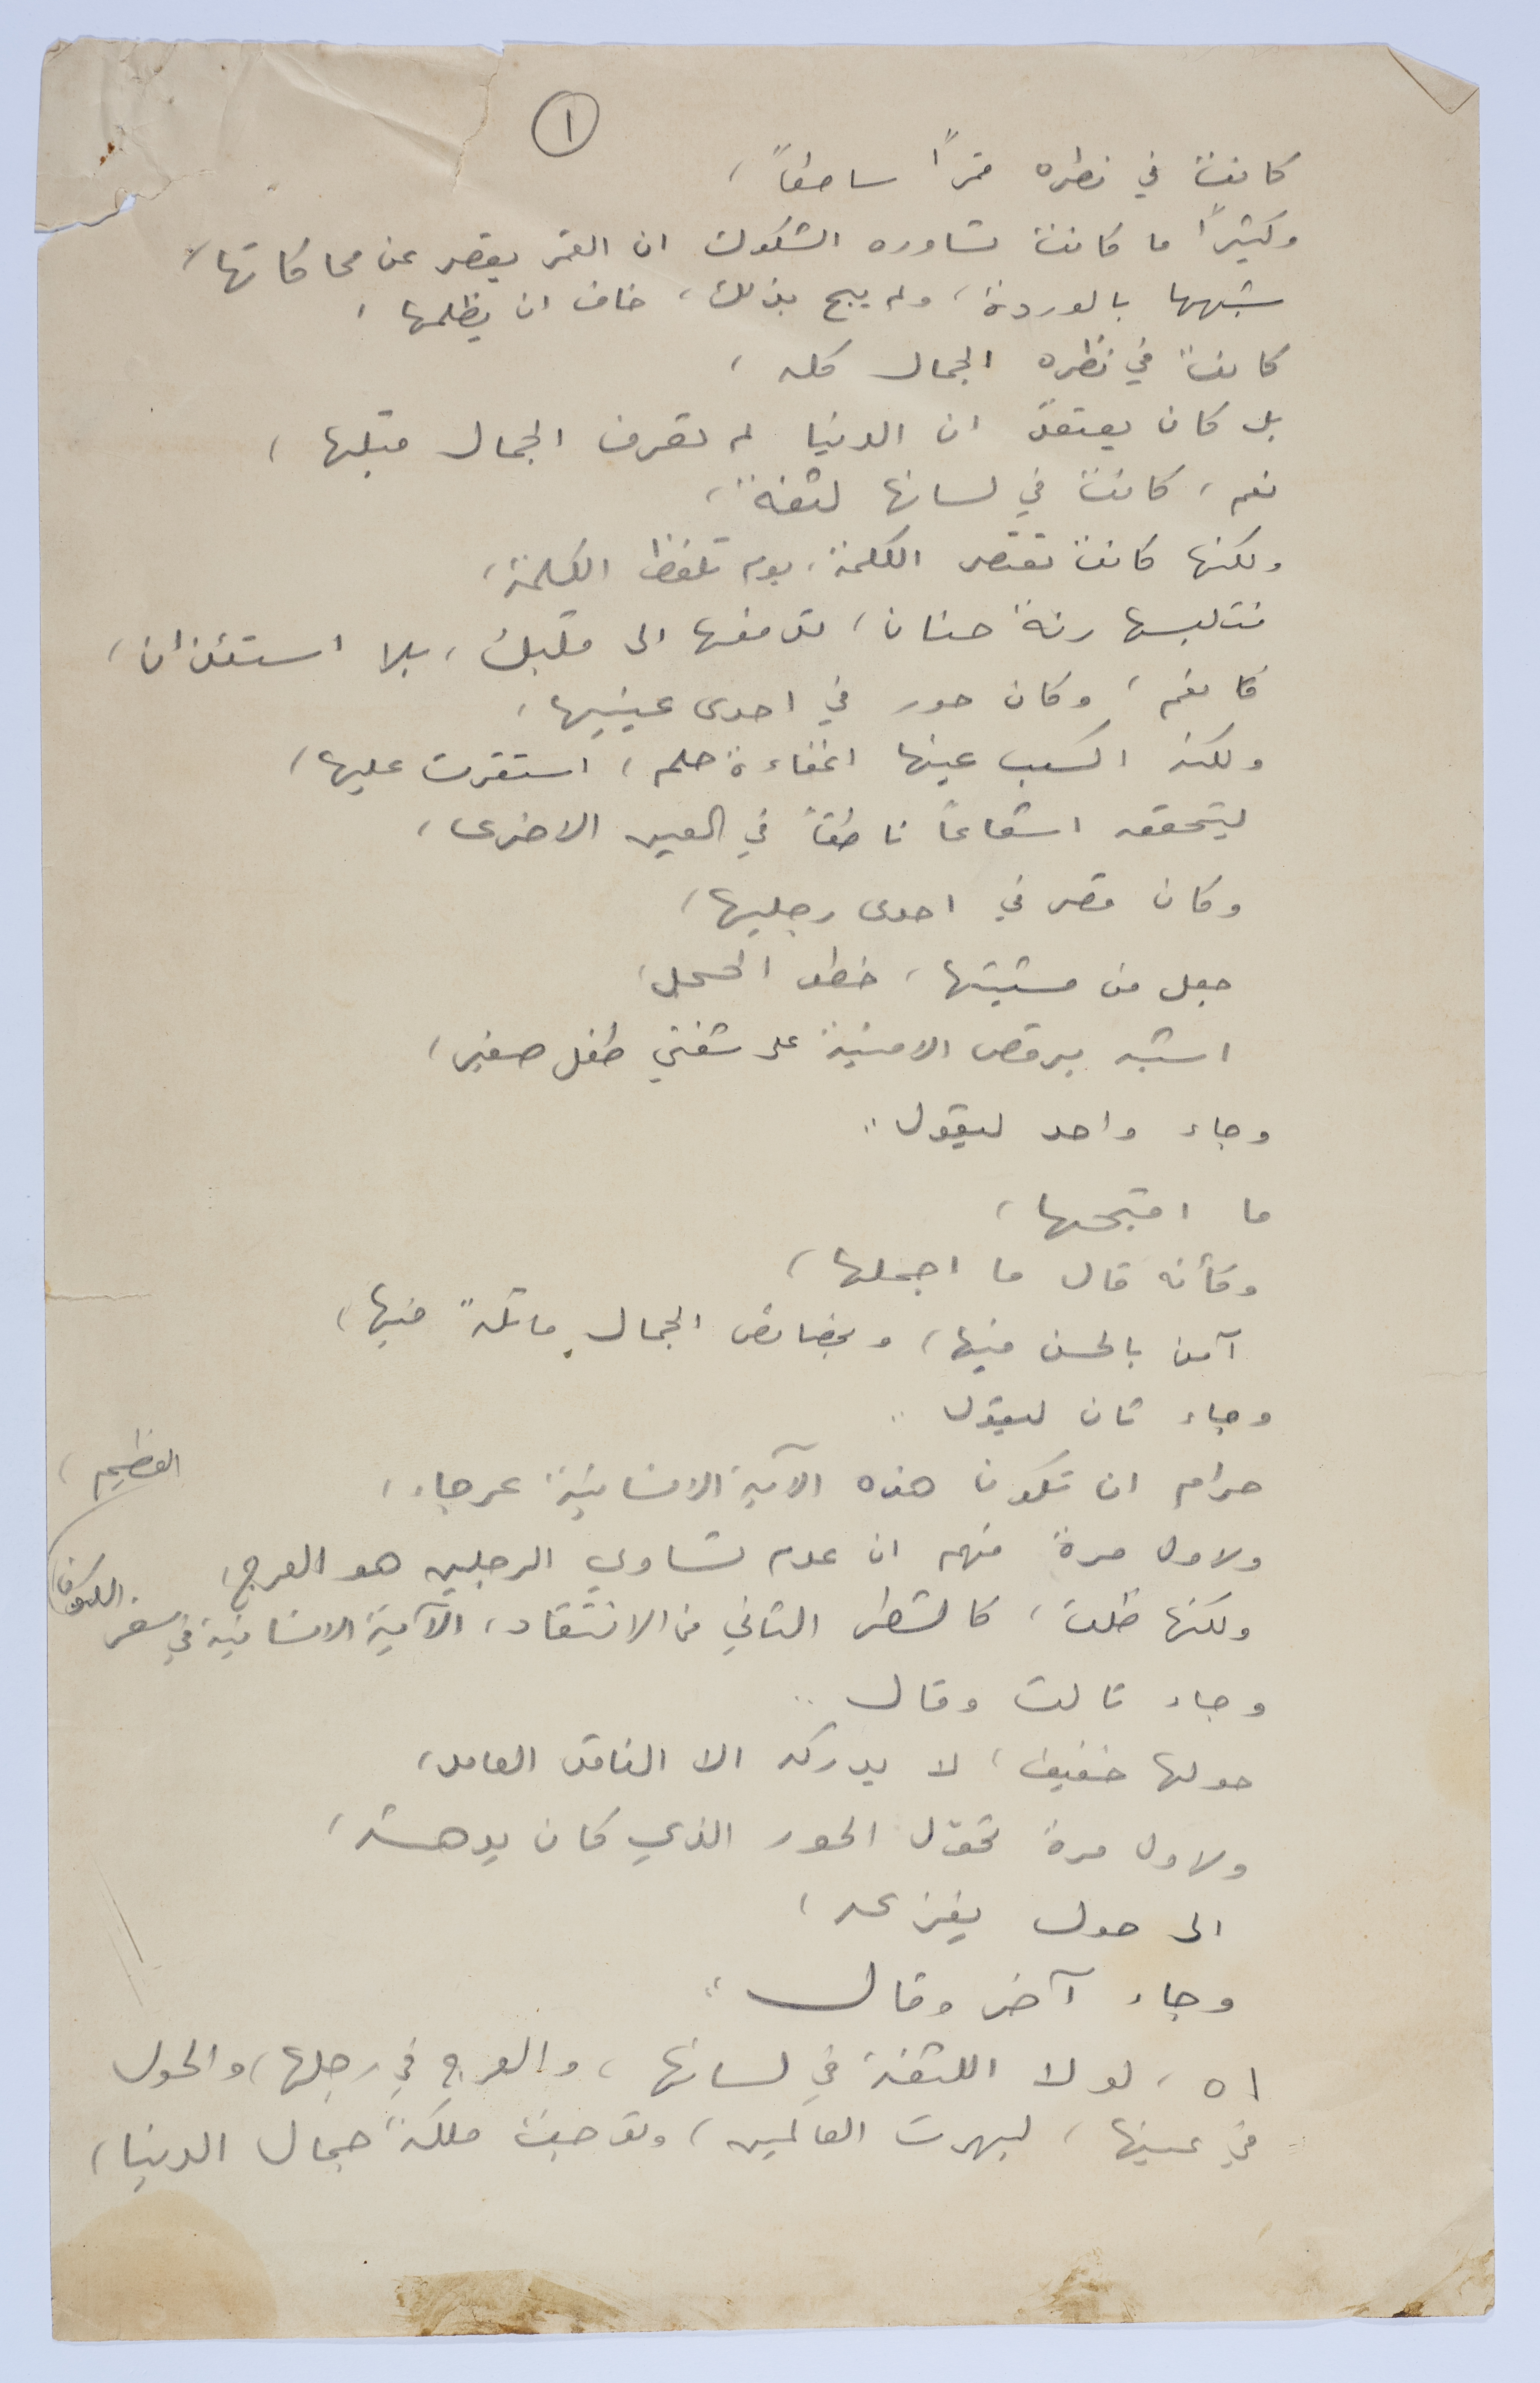 ١
كانت في نظره قمراً ساطعاً،
وكثيراً ما كانت تساوره الشكوك ان القمر يقصر عن محاكاتها،
شبهها بالوردة، ولم يبح بذلك، خاف ان يظلمها،
كانت في نظره الجمال كله،
بل كان يعتقد ان الدنيا لم تعرف الجمال قبلها،
نعم، كانت في لسانها لثغة،
ولكنها كانت تعتصر الكلمة، يوم تلفظ الكلمة،
فتلبسها رنة حنان، تدفعها الى قلبك، بلا استئذان،
كالنغم، وكان حور في احدى عينيها،
ولكنه اكسب عينها اغفاءة حلم، استقرت عليها،
ليتحقق اشعاعاً ناطقاً في العين الاخرى،
وكان قصر في احدى رجليها،
جعل من مشيتها، خطو الحجل،
اشبه برقص الامنية على شفتي طفل صغير،
وجاء واحد ليقول ..
ما اقبحها،
وكأنه قال ما اجملها،
آمن بالحسن فيها، وبخصائص الجمال ماثلة فيها،
وجاء ثان ليقول ..
حرام ان تكون هذه الآية الانسانية عرجاء،
ولاول مرة فهم ان عدم تساوي الرجلين هو العرج،
ولكنها ظلت، كالشطر الثاني من الانتقاد، الآية الانسانية في سفر الكون العظيم،
وجاء ثالث وقال ..
حولها خفيف، لا يدركه الا الناقد العامد،
ولاول مرة تحوّل الحور الذي كان يدهشه،
الى حول يفزعه،
وجاء آخر وقال ..
اه، لولا اللثغة في لسانها، والعرج في رجلها، والحول
في عينها، لبهرت العالمين، وتوجت ملكة جمال الدنيا،